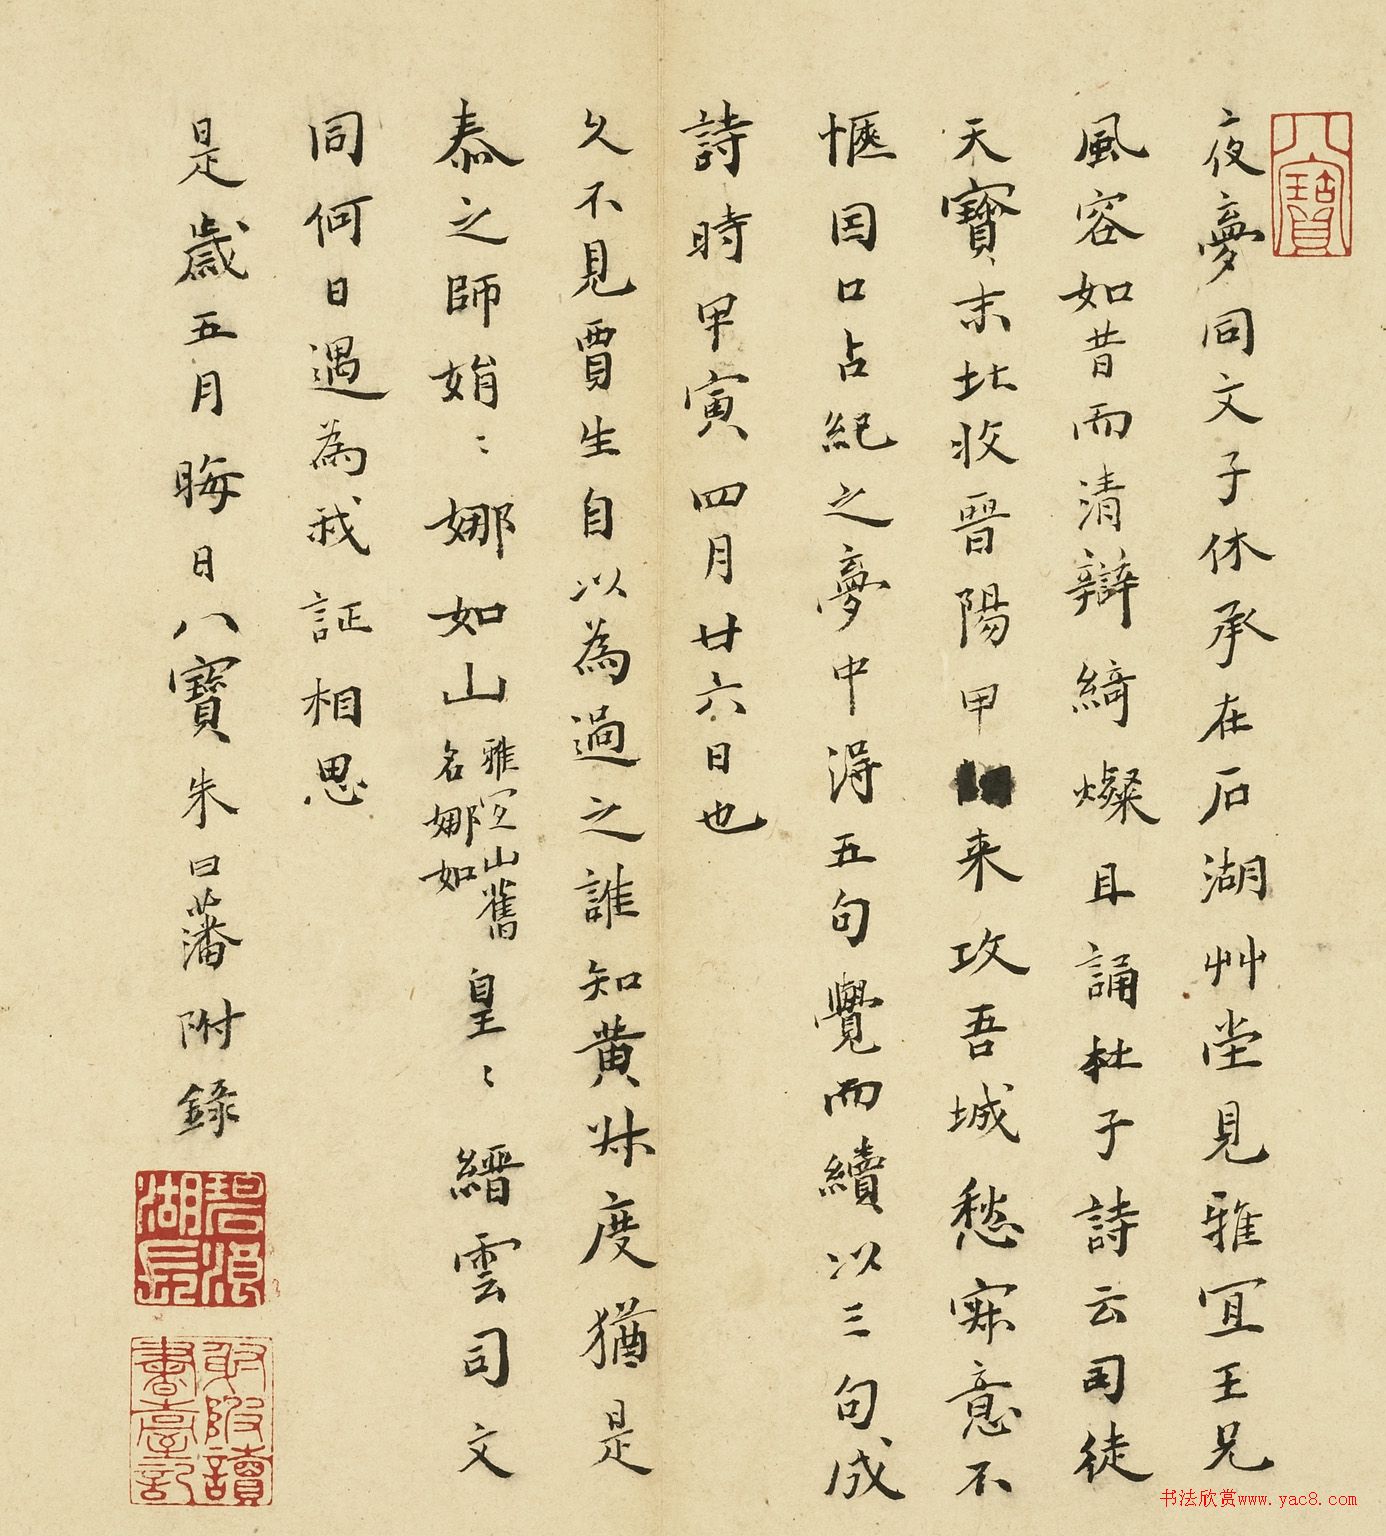 八寶
夜夢同文子休承在石湖艸堂見雅宜王兄
風容如昔而清辯綺燦且誦杜子詩云司徒
天寶末北收晉陽甲來攻吾城愁寐意不
愜因口占紀之夢中得五句覺而續以三句成
詩時甲寅四月廿六日也
久不見賈生自以為過之誰知黃叔度猶是
泰之師娟〻娜如山雅宜山舊名娜如皇〻縉雲司文
同何日遇為我証相思
是歲五月晦日八寶朱曰藩附錄
碧浪湖長
讀書臺記
书法欣赏www.yac8.com